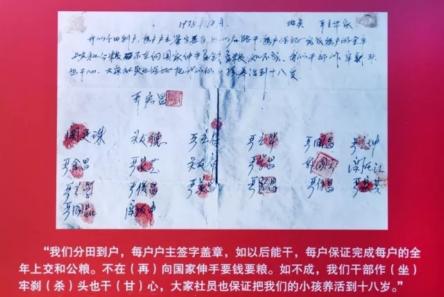 1978.12月 地点 严立华家
我们分田到户，每户户主签字盖章，如以后能干，每户保证完成每户的全年
上交和公粮，不在向国家伸手要钱要粮，如不成，我们干部作牢刹
头也干心，大家社员也保证把我们的小孩养活到十八岁
严宏昌
关廷珠 关友德
严金昌
严俊昌
“我们分田到户，每户户主签字盖章，如以后能干，每户保证完成每户的全
年上交和公粮。不在（再）向国家伸手要钱要粮。如不成，我们干部作（坐）
牢刹（杀）头也干（甘）心，大家社员也保证把我们的小孩养活到十八岁。”